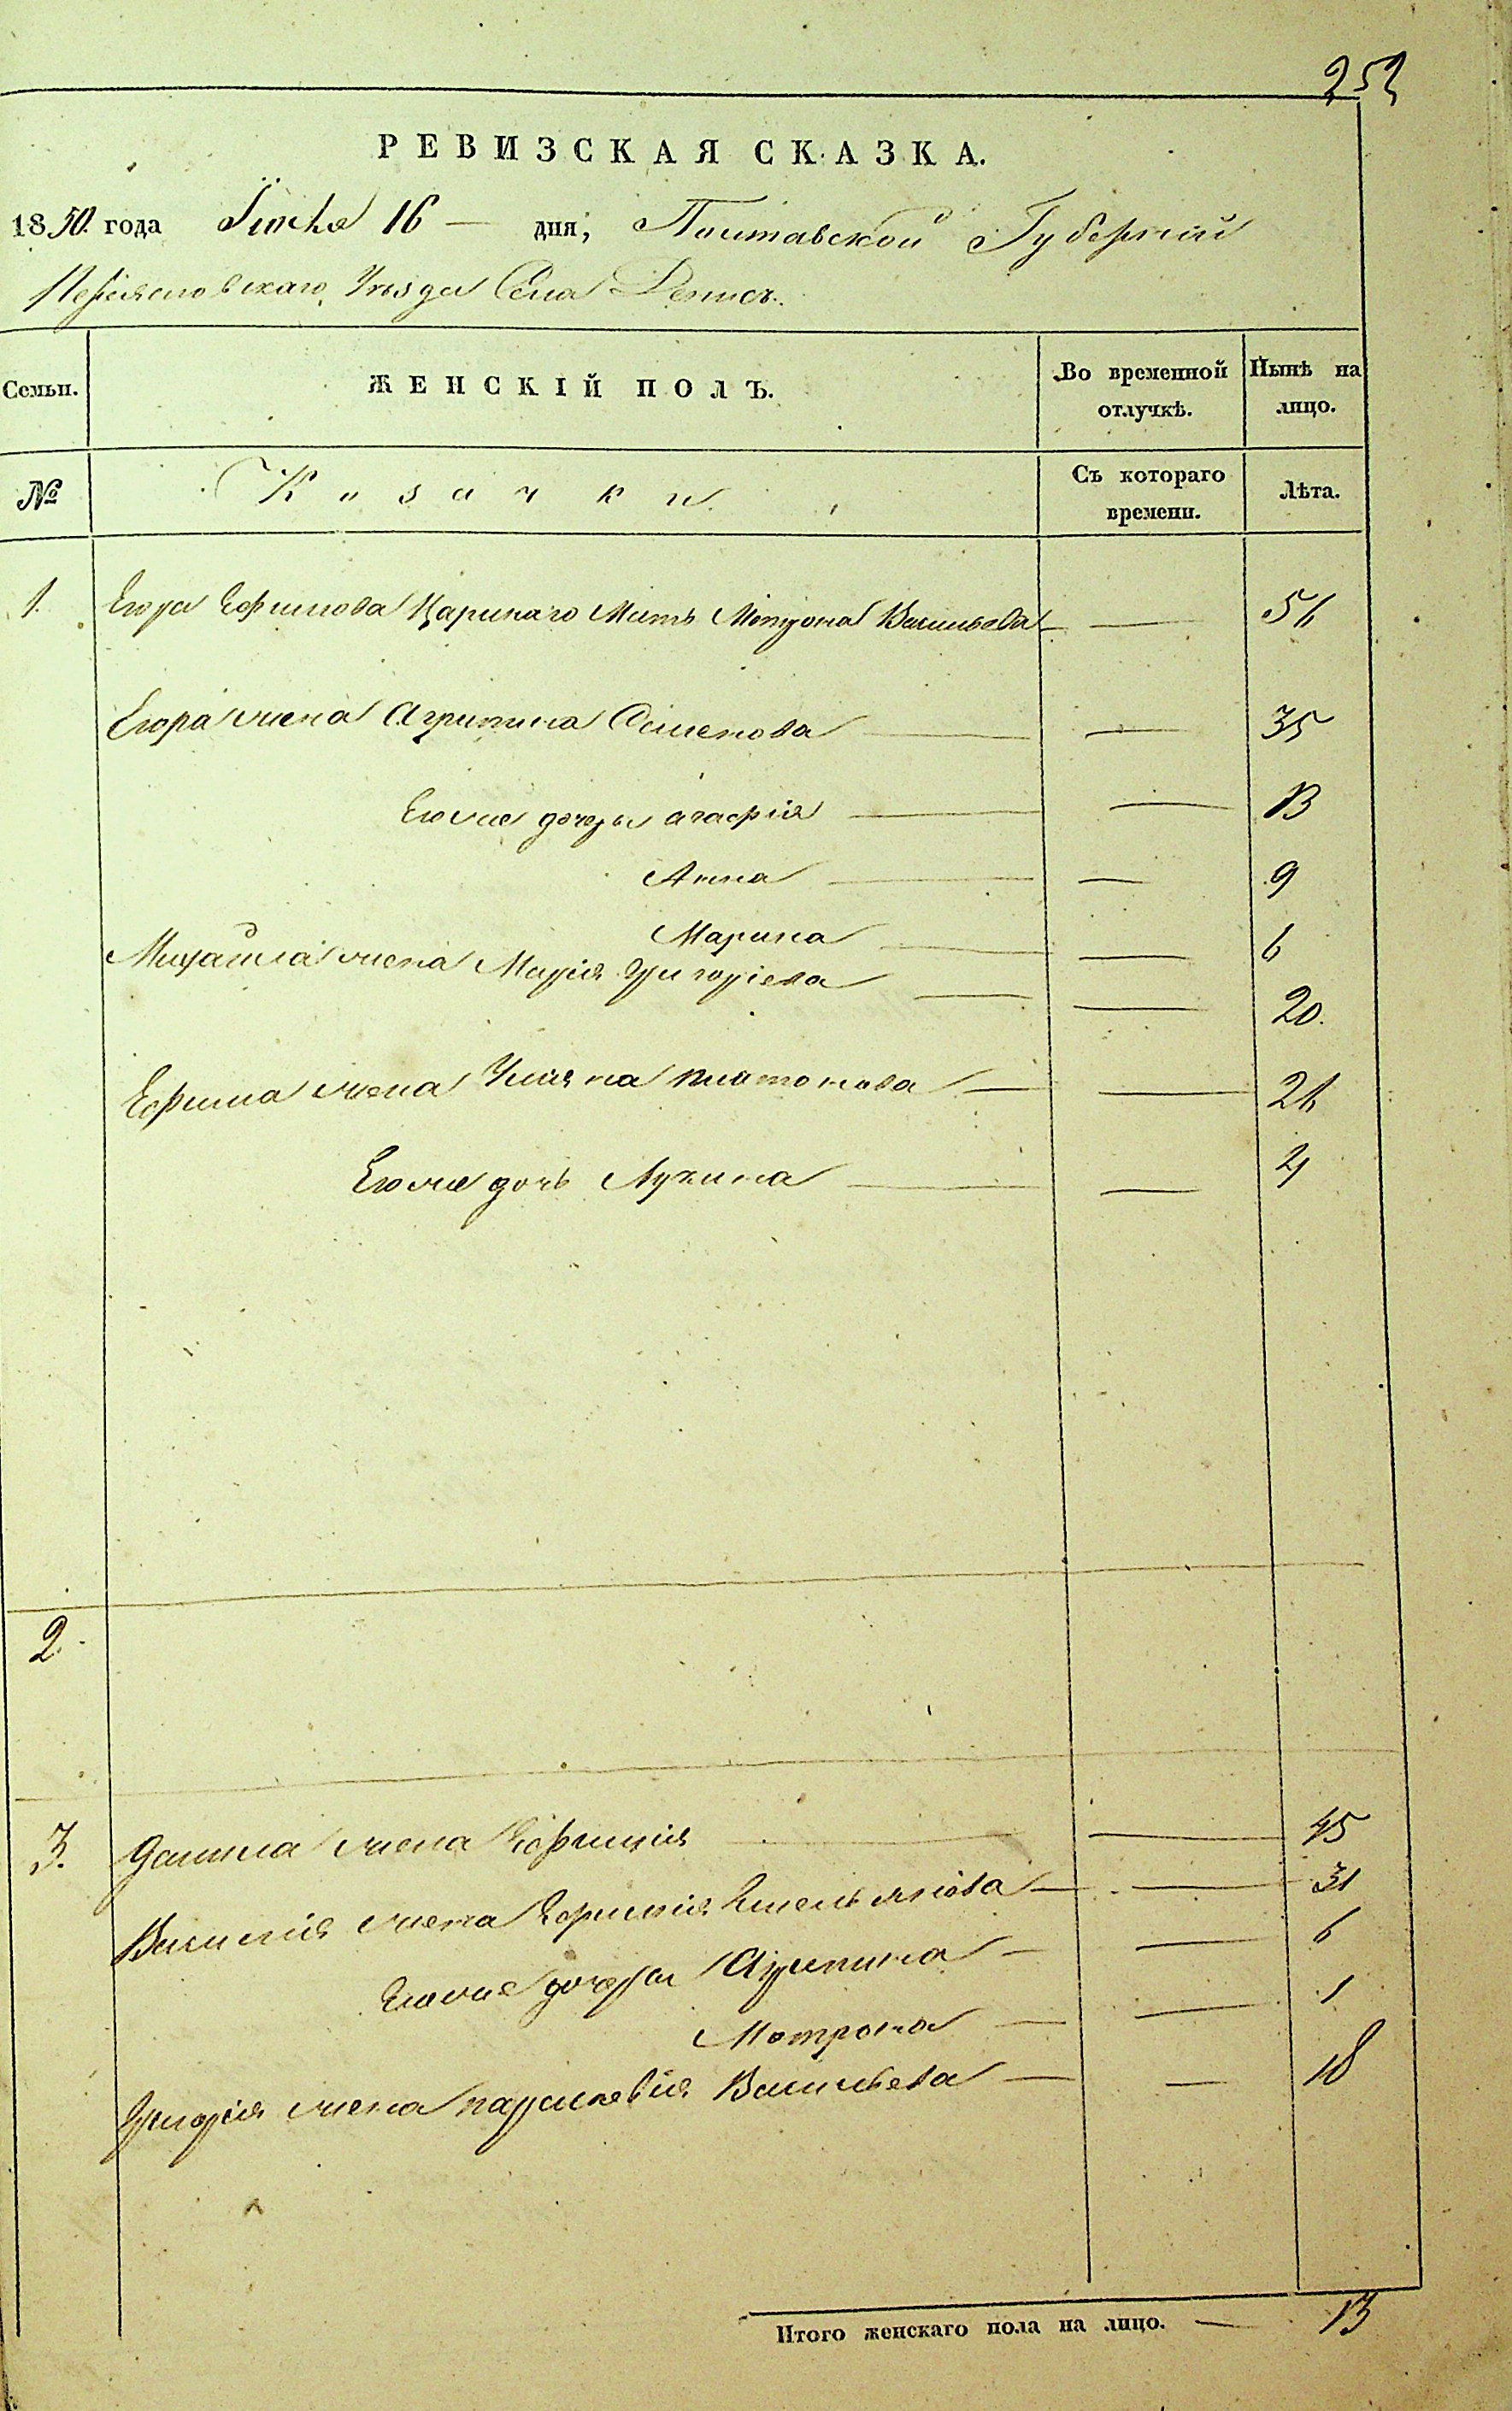 252
РЕВИЗСКАЯ СКАЗКА.
1850. года Іюня 16 — дня, Полтавской Губерніи
Переясловскаго Уезда Села Денисъ.
Семьи. ЖЕНСКІЙ ПОЛЪ. Во временной отлучкѣ. Нынѣ на лицо.
№ Козачки Съ котораго времени. Лѣта.
1. Егора Ефимова Мать Матрона Васильева — 56
Егора жена Агрипина Семенова — 35
Егоже дочери Агафія — 13
Анна — 9
Марина — 6
Михайла жена Марія Григоріева — 20.
Ефима жена Уліяна Платонова — 26
Егоже дочь — 4
2.
3. Данила жена Ефимія — 45
Василія жена Ефимія Емельянова — 31
Егоже дочери Агрипина — 6
Матрона — 1
Григорія жена Параскевія Васильева — 18
Итого женскаго пола на лицо. — 13